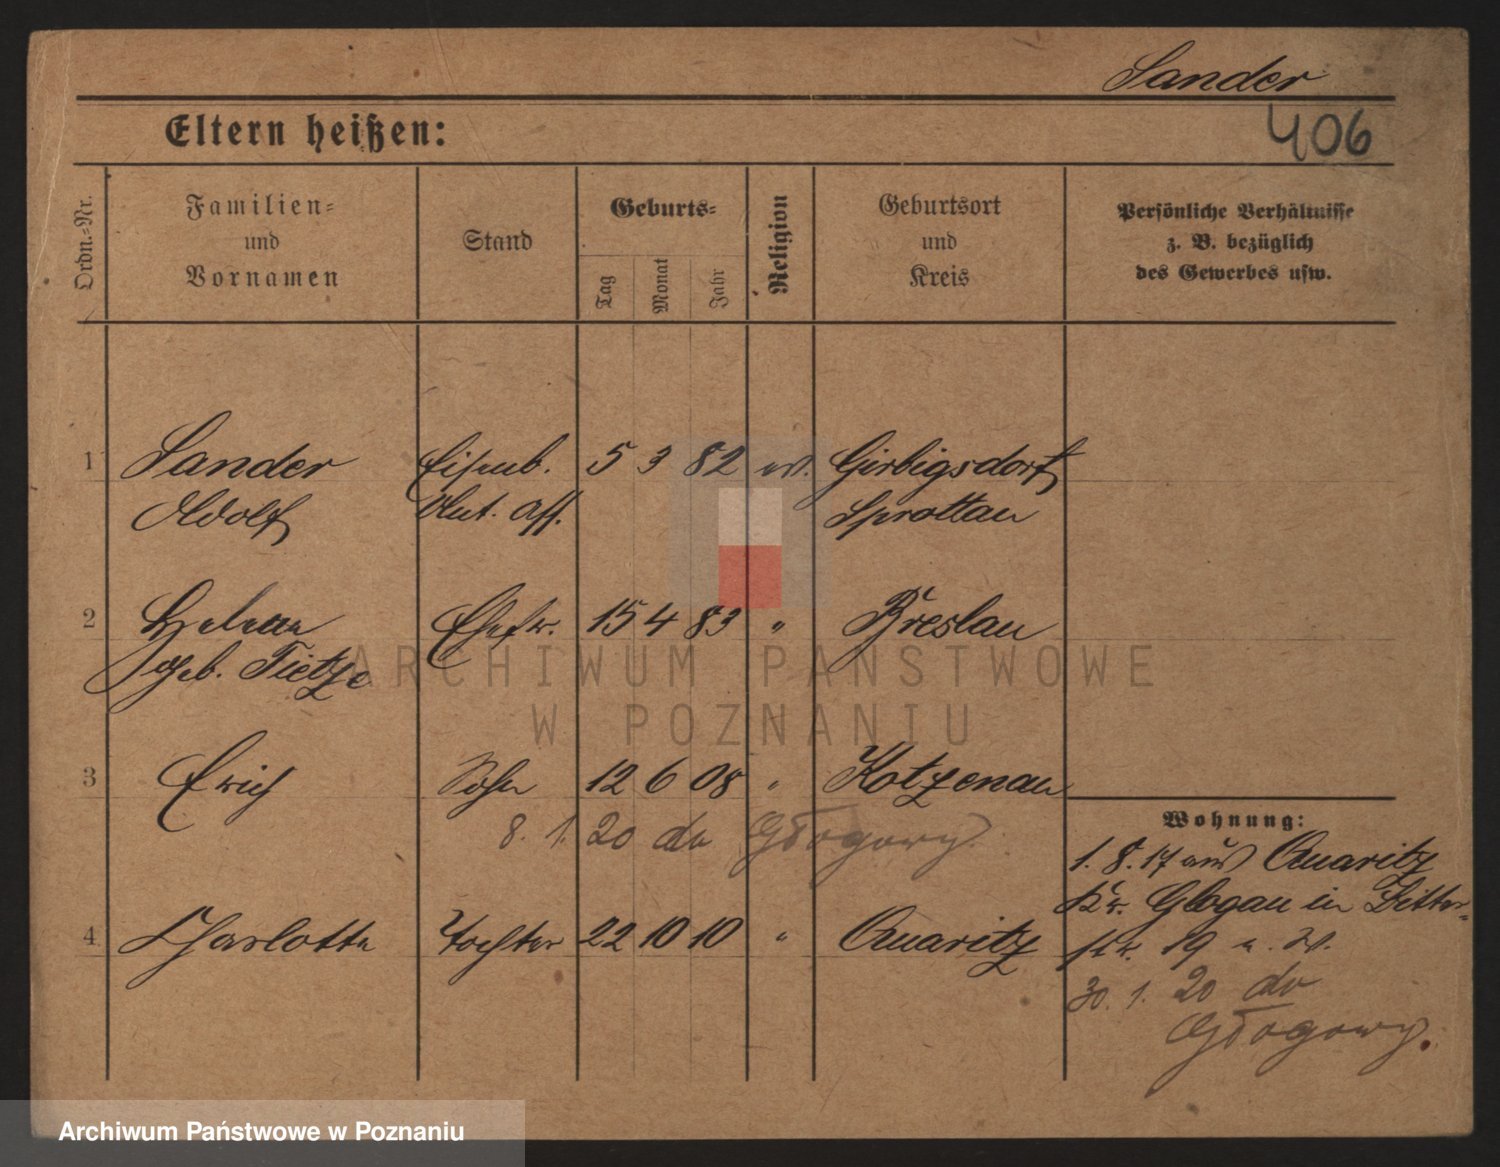 Sander
406
Eltern heißen:
Ordn.=Nr.
Familien=
und
Vornamen
Stand
Geburts=
Tag
Monat
Jahr
Religion
Geburtsort
und
Kreis
Persönliche Verhältnisse
z. B. bezüglich
des Gewerbes usw.
1 Sander Eisenb. 5 3 82 ev. Girbigsdorf
Adolf Ass. Sprottau
2 Helene Ehefr. 15 4 83 " Breslau
geb. Tietze
3 Erich Sohn 12 6 08 " Kotzenau
8. 1. 20 do Głogowy.
Wohnung:
1. 8. 17 aus Quaritz
Kr. Glogau in Ritter=
4 Charlotte Tochter 22 10 10 " Quaritz
str. 19 a. W.
30. 1. 20 do
Głogowy.
ARCHIWUM PAŃSTWOWE
W POZNANIU
Archiwum Państwowe w Poznaniu